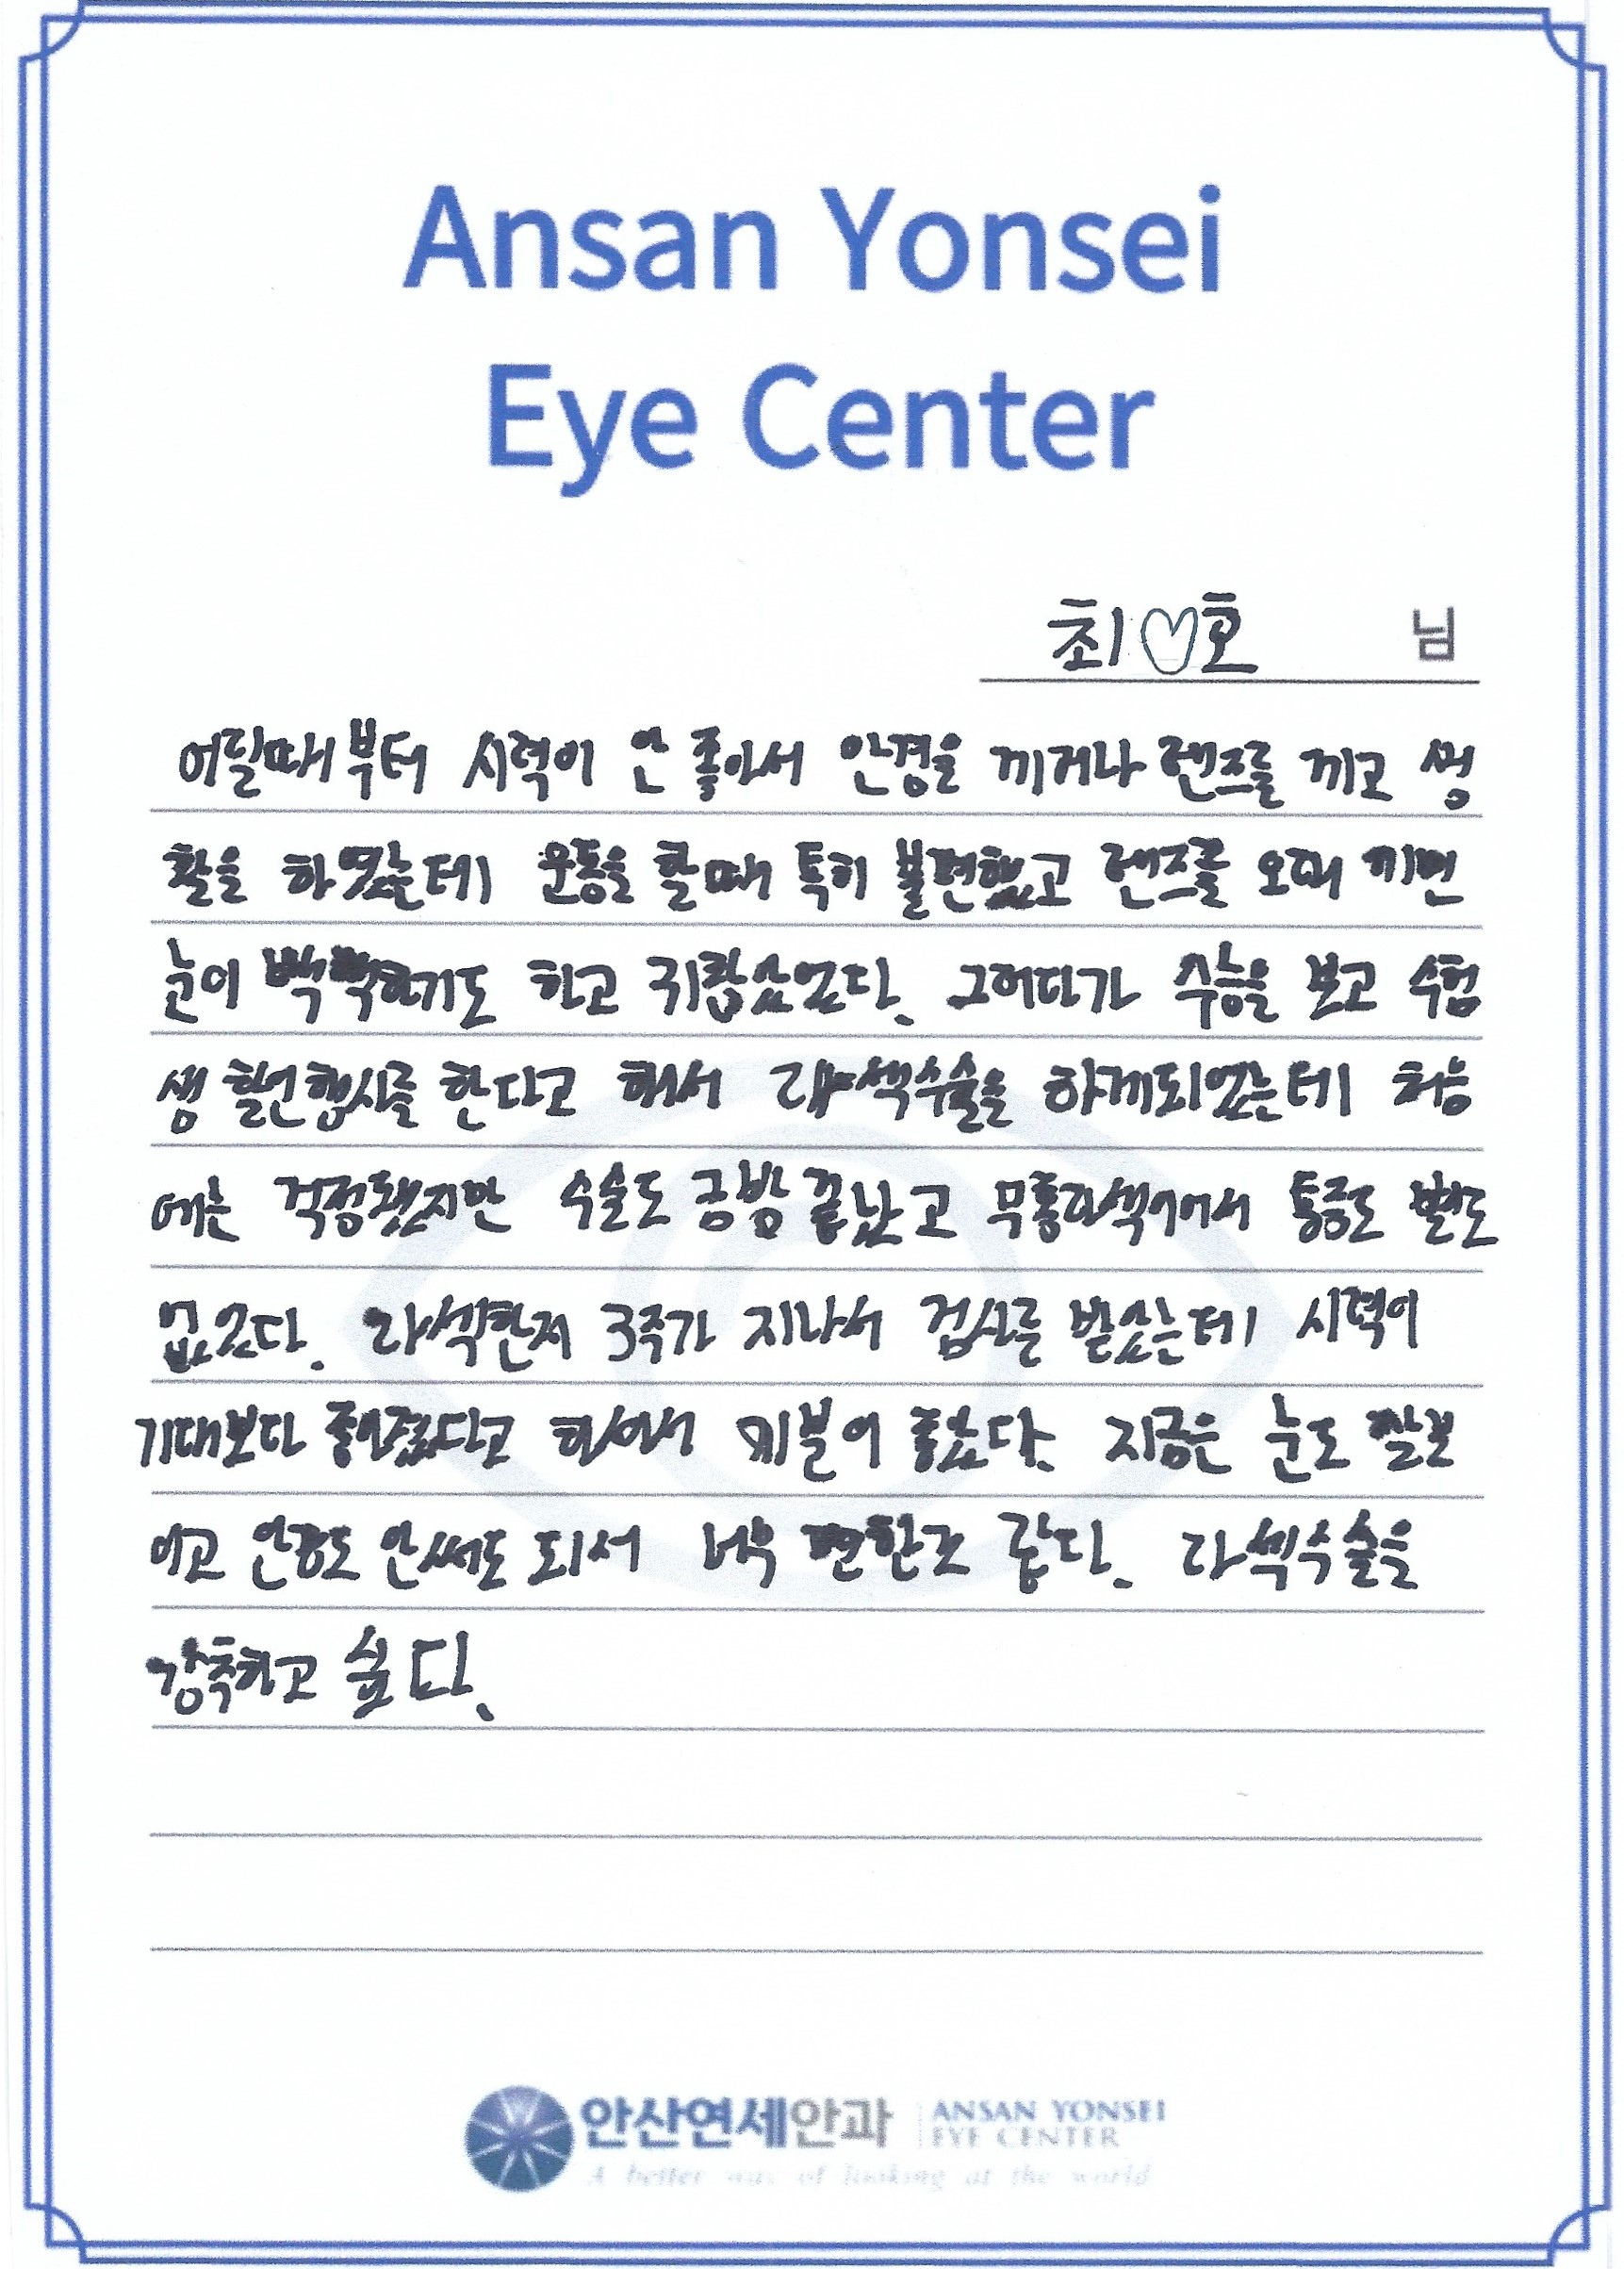 Ansan Yonsei
Eye Center
최♡호 님
어릴때부터 시력이 안 좋아서 안경을 끼거나 렌즈를 끼고 생
활을 하였는데 운동을 할때 특히 불편했고 렌즈를 오래 끼면
눈이 뻑뻑하기도 하고 귀찮았었다. 그러다가 수능을 보고 수험
생 할인행사를 한다고 해서 라섹수술을 하게되었는데 처음
에는 걱정됐지만 수술도 금방 끝났고 무통라섹이여서 통증도 별로
없었다. 라섹한지 3주가 지나서 검사를 받았는데 시력이
기대보다 좋아졌다고 하여서 기분이 좋았다. 지금은 눈도 잘보
이고 안경도 안써도 되서 너무 편한것 같다. 라섹수술을
강추하고 싶다.
안산연세안과 ANSAN YONSEI
EYE CENTER
A better way of looking at the world